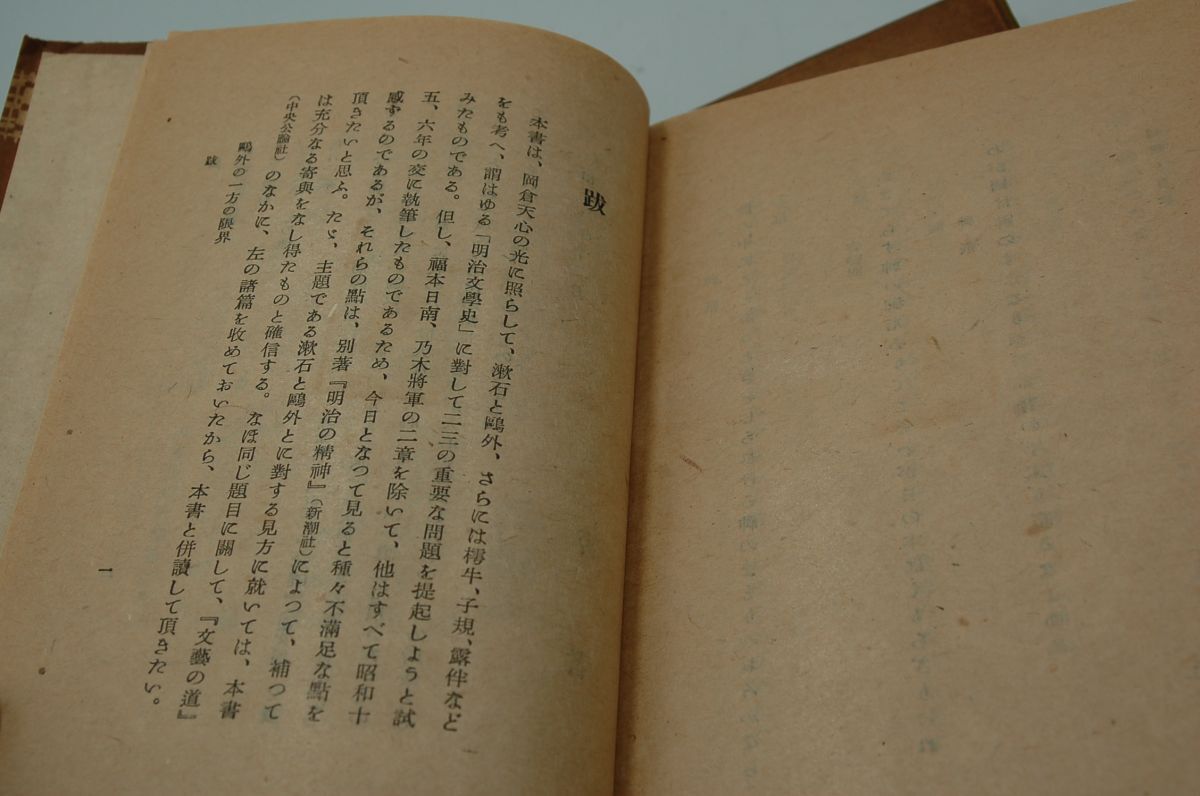 跋
本書は、岡倉天心の光に照らして、漱石と鷗外、さらには樗牛、子規、露伴など
をも考へ、謂はゆる「明治文學史」に對して二三の重要な問題を提起しようと試
みたものである。但し、福本日南、乃木將軍の二章を除いて、他はすべて昭和十
五、六年の交に執筆したものであるため、今日となつて見ると種々不滿足な點を
感ずるのであるが、それらの點は、別著『明治の精神』(新潮社)によつて、補つて
頂きたいと思ふ。たゞ、主題である漱石と鷗外とに對する見方に就いては、本書
は充分なる寄與をなし得たものと確信する。なほ同じ題目に關して、『文藝の道』
(中央公論社)のなかに、左の諸篇を收めておいたから、本書と併讀して頂きたい。
鷗外の一方の限界
跋
一